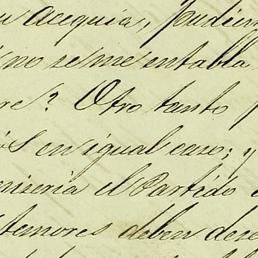 acequia, pudien
no se me entabla
re? Otro tanto
S en igual caso; y
miseria el Partido
temores deben des